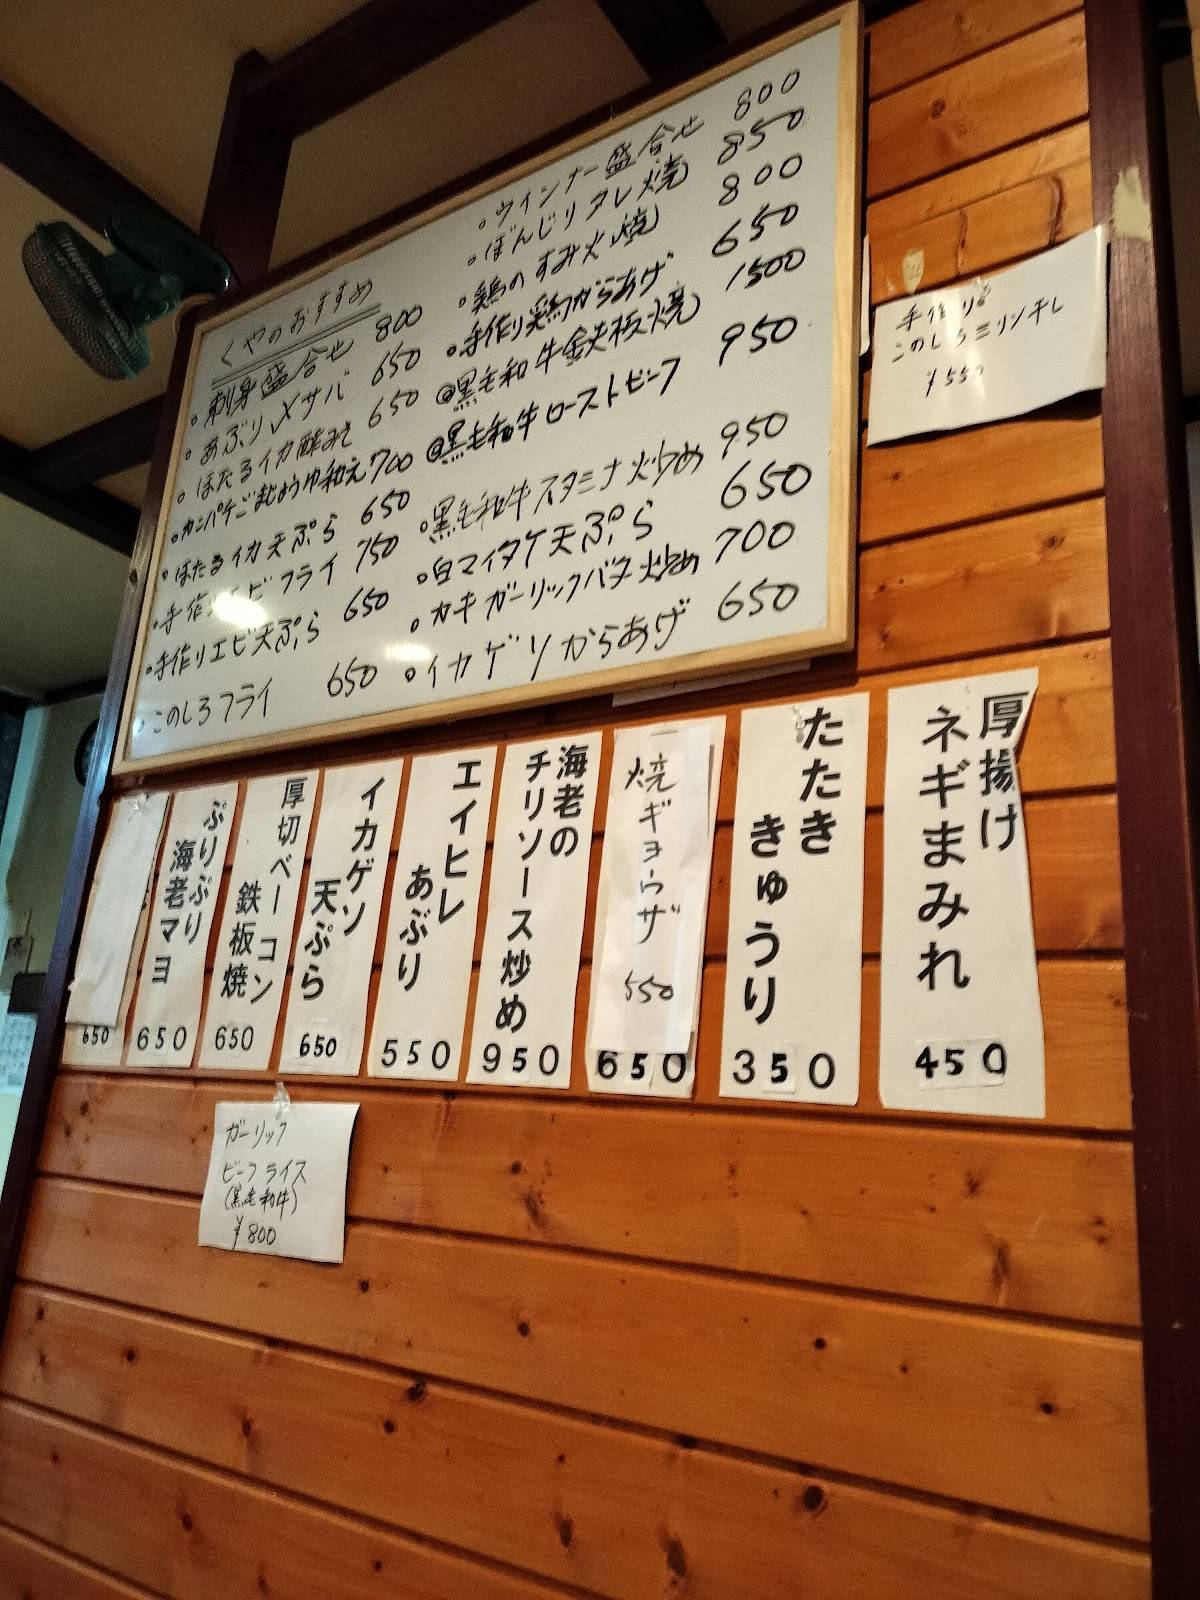 くやのおすすめ
。刺身盛合せ 800
。あぶり〆サバ 650
。ほたるイカ酢みそ 650
。カンパチごまじょうゆ和え 700
。ほたるイカ天ぷら 650
。手作りエビフライ 750
。手作りエビ天ぷら 650
。このしろフライ 650
。ウインナー盛合せ 800
。ぼんじりタレ焼 850
。鶏のすみ火焼 800
。手作り鶏からあげ 650
◎黒毛和牛鉄板焼 1500
◎黒毛和牛ローストビーフ 950
。黒毛和牛スタミナ炒め 950
。白マイタケ天ぷら 650
。カキガーリックバタ炒め 700
。イカゲソからあげ 650
手作り
このしろミリン干し
¥550
厚揚け
ネギまみれ
450
たたき
きゅうり
350
焼ギョウザ
550
650
海老の
チリソース炒め
950
エイヒレ
あぶり
550
イカゲソ
天ぷら
650
厚切ベーコン
鉄板焼
650
ぷりぷり
海老マヨ
650
650
ガーリック
ビーフライス
(黒毛和牛)
¥800